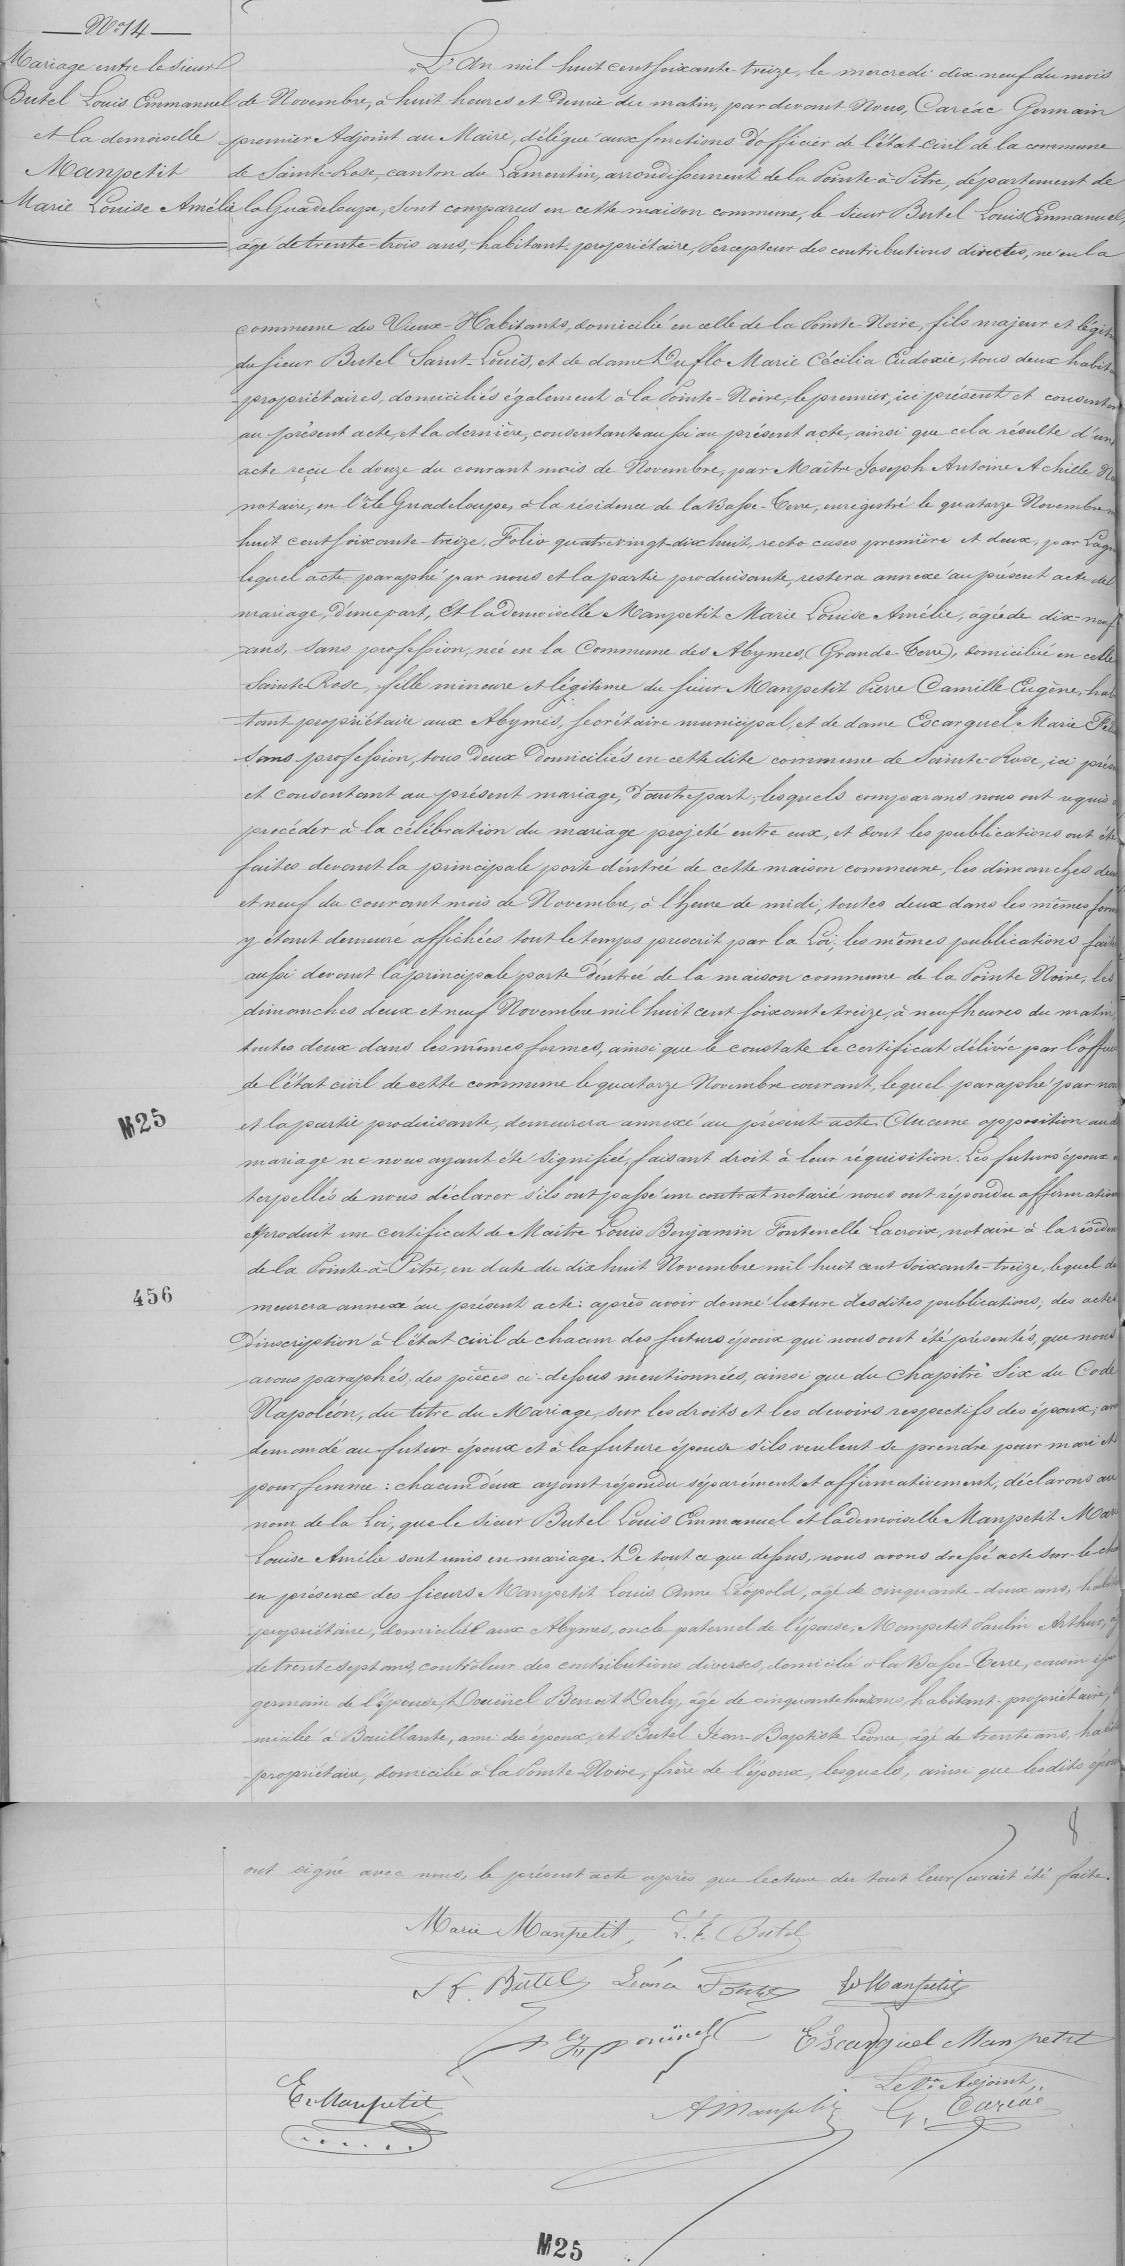 No 14
Mariage entre le sieur
Butel Louis Emmanuel
et la demoiselle
Manpetit
Marie Louise Amélie
L'An mil huit cent soixante-treize, le mercredi dix neuf du mois
de Novembre, à huit heures et demie du matin, par devant Nous, Caréac Germain
premier Adjoint au Maire, délégué aux fonctions d'officier de l'état-civil de la commune
de Sainte-Rose, canton du Lamentin, arrondissement de la Pointe-à-Pitre, département de
la Guadeloupe, sont comparus en cette maison commune, le sieur Butel Louis Emmanuel,
âgé de trente-trois ans, habitant-propriétaire, Percepteur des contributions directes, né en la
commune des Vieux-Habitants, domicilié en celle de la Pointe-Noire, fils majeur et légit
du sieur Butel Saint-Louis, et de dame Duflo Marie Cécilia Eudoxie, tous deux habit
propriétaires, domiciliés également à la Pointe-Noire, le premier, ici présent et consentan
au présent acte, et la dernière, consentante aussi au présent acte, ainsi que cela résulte d'un
acte reçu le douze du courant mois de Novembre, par Maître Joseph Antoine Achille
notaire, en l'île Guadeloupe, à la résidence de la Basse-Terre, enregistré le quatorze Novembre
huit cent soixante-treize, Folio quatrevingt-dix huit, recto cases première et deux, par
lequel acte paraphé par nous et la partie produisante, restera annexé au présent acte de
mariage, d'une part, Et la demoiselle Manpetit Marie Louise Amélie, âgée de dix-neuf
ans, sans profession, née en la Commune des Abymes, (Grande-Terre), domiciliée en celle
Sainte Rose, fille mineure et légitime du sieur Manpetit Pierre Camille Eugène, hab
tant propriétaire aux Abymes, secrétaire municipal, et de dame Escarguel Marie
sans profession, tous deux domiciliés en cette dite commune de Sainte-Rose, ici prése
et consentant au présent mariage, d'autre part; lesquels comparans nous ont requis
procéder à la célébration du mariage projeté entre eux, et dont les publications ont été
faites devant la principale porte d'entrée de cette maison commune, les dimanches deux
et neuf du courant mois de Novembre, à l'heure de midi, toutes deux dans les mêmes form
y étant demeuré affichées tout le temps prescrit par la Loi, les mêmes publications faites
aussi devant la principale porte d'entrée de la maison commune de la Pointe Noire, les
dimanches deux et neuf Novembre mil huit cent soixante treize, à neuf heures du matin
toutes deux dans les mêmes formes, ainsi que le constate le certificat délivré par l'offic
de l'état civil de cette commune le quatorze Novembre courant, lequel paraphé par nou
et la partie produisante, demeurera annexé au présent acte. Aucune opposition au d
mariage ne nous ayant été signifiée, faisant droit à leur réquisition. Les futurs époux
terpellés de nous déclarer s'ils ont passé un contrat notarié nous ont répondu affirmation
et produit un certificat de Maitre Louis Benjamin Fontenelle Lacroix, notaire à la résiden
de la Pointe-à-Pitre, en date du dix huit Novembre mil huit cent soixante-treize, lequel de
meurera annexé au présent acte: après avoir donné lecture desdites publications, des actes
d'inscription à l'état civil de chacun des futurs époux qui nous ont été présentés, que nous
avons paraphés; des pièces ci-dessus mentionnées, ainsi que du chapitre Six du Code
Napoléon, du titre du Mariage, sur les droits et les devoirs respectifs des époux, avo
demandé au futur époux et à la future épouse s'ils veulent se prendre pour mari et
pour femme: chacun d'eux ayant répondu séparément et affirmativement, déclarons au
nom de la Loi, que le sieur Butel Louis Emmanuel et la demoiselle Manpetit Mar
Louise Amélie sont unis en mariage. De tout ce que dessus, nous avons dressé acte sur-le-cha
en présence des sieurs Manpetit Louis Anne Léopold, âgé de cinquante-deux ans, habit
propriétaire, domicilié aux Abymes, oncle paternel de l'épouse, Manpetit Paulin Arthur, âg
de trente sept ans, contrôleur des contributions diverses, domicilié à la Basse-Terre, cousin
germain de l'épouse, Douënel Benoit Derly, âgé de cinquante huit ans, habitant-propriétaire,
micilié à Bouillante, ami des époux, et Butel Jean-Baptiste Léonce, âgé de trente ans, habit
propriétaire, domicilié à la Pointe-Noire, frère de l'époux, lesquels, ainsi que lesdits épou
M25
456
8
ont signé avec nous, le présent acte après que lecture du tout leur avait été faite.
Marie Manpetit, L. E. Butel
Butel Léonce
Manpetit
Douënel
Escarguel Manpetit
E. Manpetit
A Manpetit
Le 1er Adjoint,
G. Caréac
M25